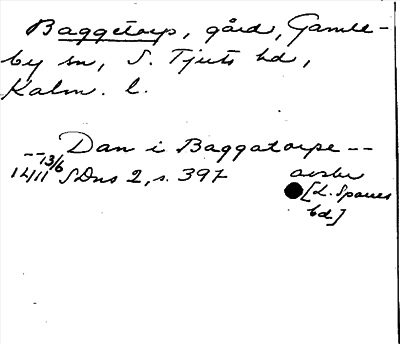 Baggetorp, gård, Gamle-
by sn, S. Tjusts hd,
Kalm. l.
Dan i Baggatorpe --
-- 13/6
1411 SDns 2, s. 397
avskr
[L. Sparres
bd]